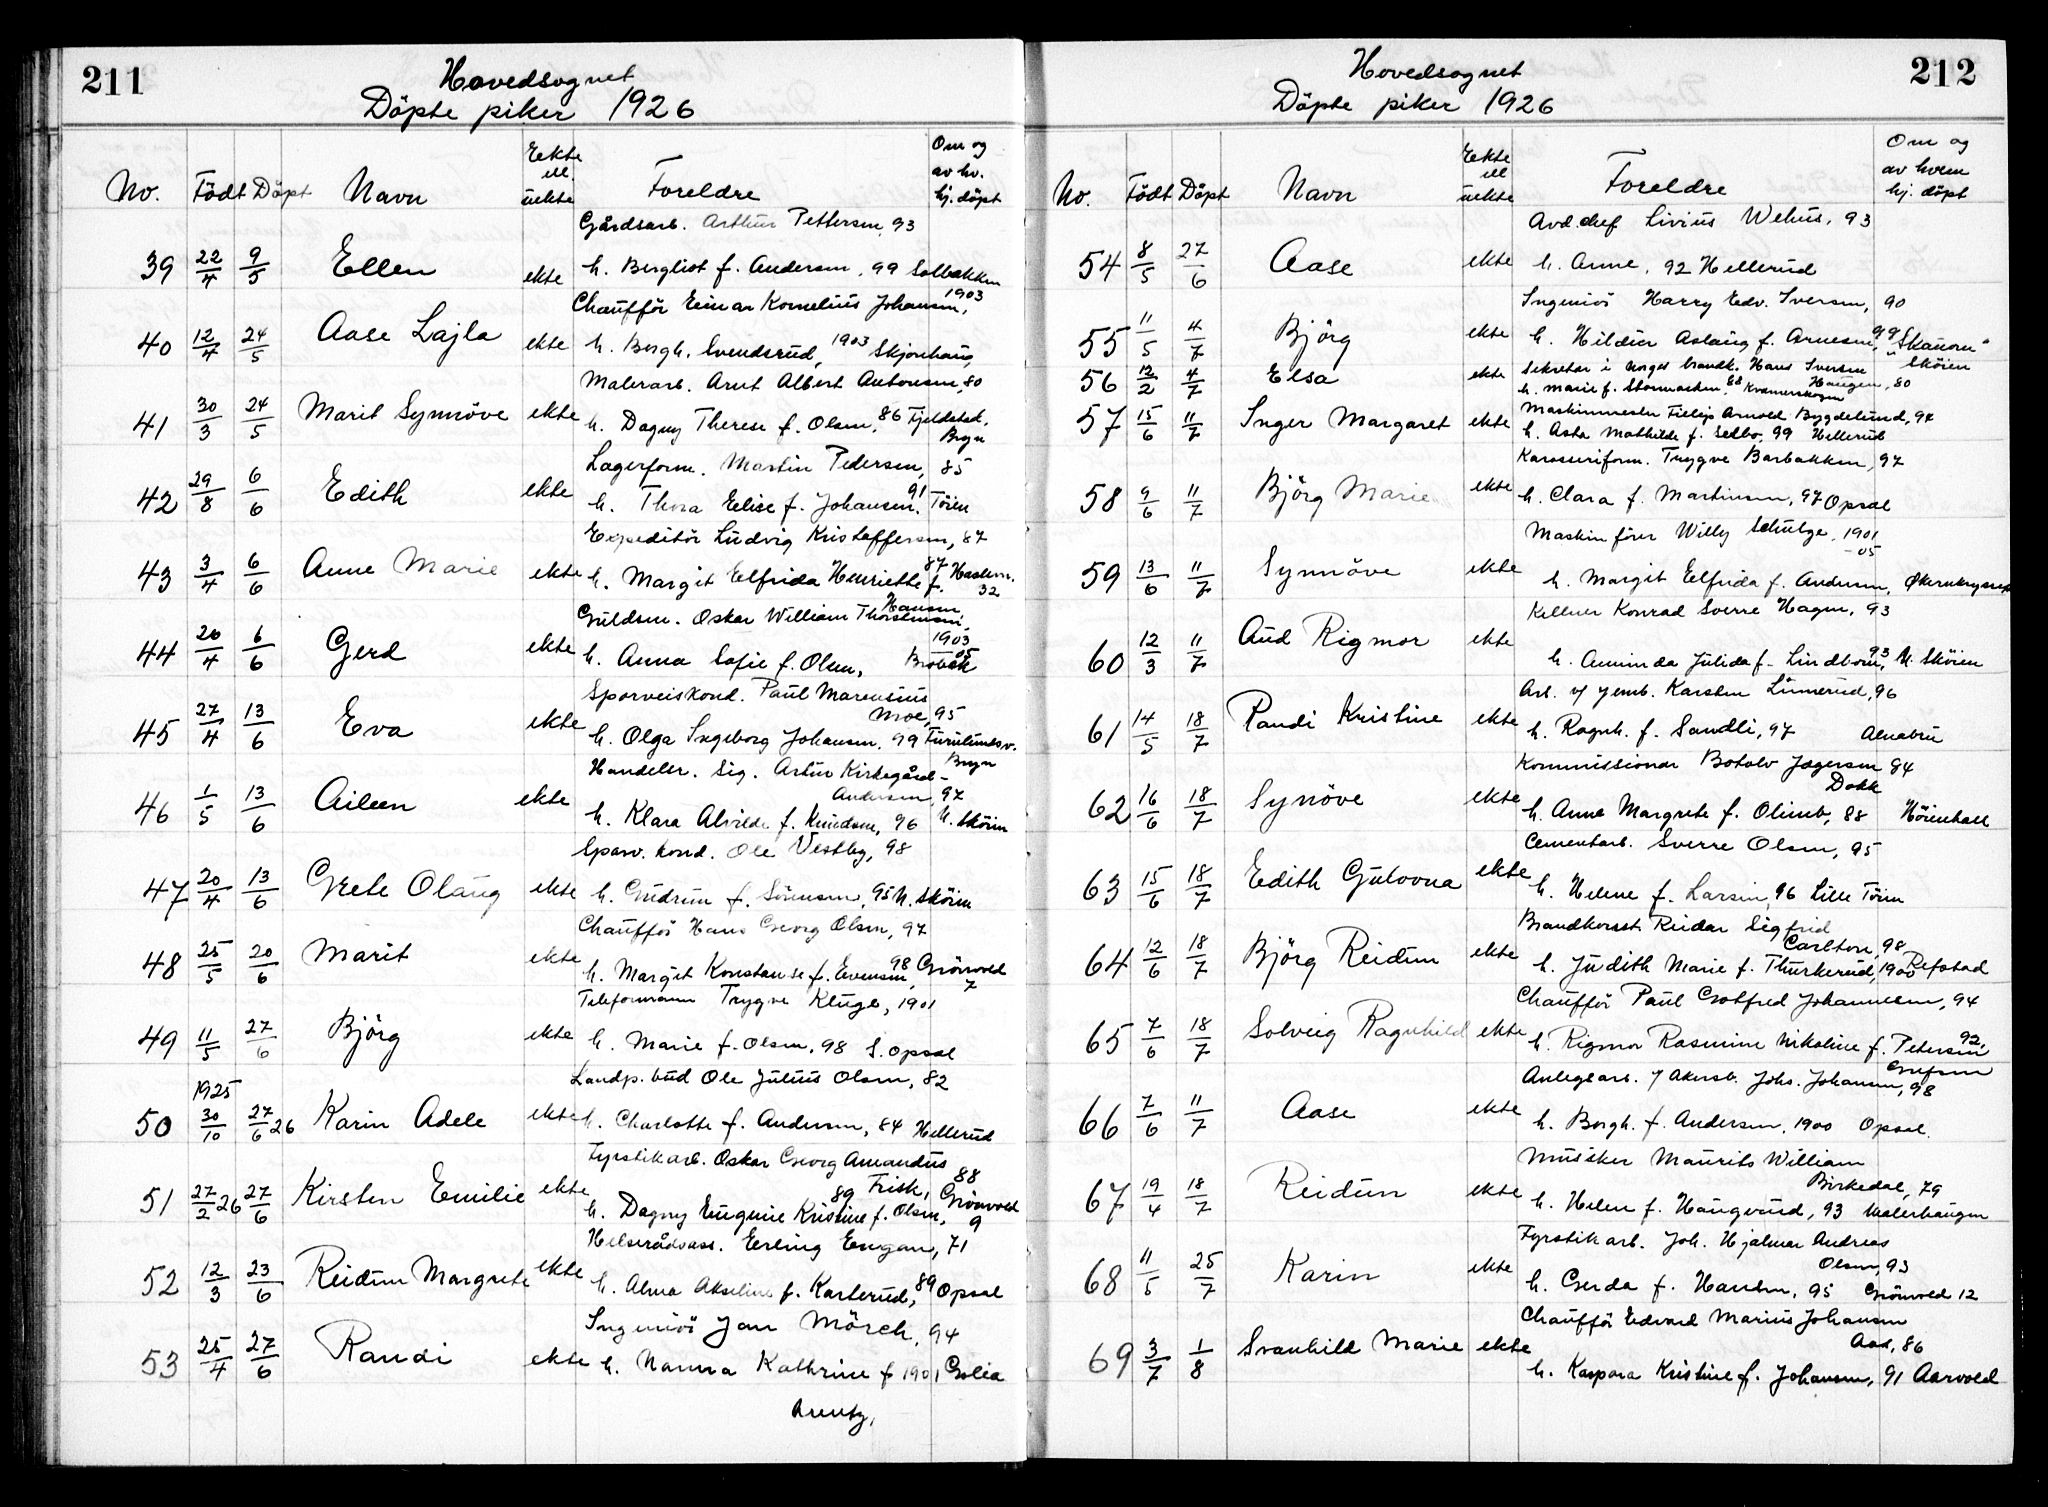 211
Hovedsognet
Döpte piker 1926
No. Födt Döpt Navn Eekte ell. uekte Foreldre Om og av hv. hj. döpt
Gårdsarb. Arthur Pettersen, 93
39 22/4 9/5 Ellen ekte h. Bergliot f. Andersen, 99 Solbakken
Chaufför Einar Kornelius Johansen, 1903
40 12/4 24/5 Aase Lajla ekte h. Borgh. Svendsrud, 1903 Skjonhaug
Malerarb. Arnt Albert Antonsen, 80
41 30/3 24/5 Marit Synnöve ekte h. Dagny Therese f. Olsen, 86 Fjeldstad, Bryn
Lagerform. Martin Pedersen, 85
42 29/8 6/6 Edith ekte h. Thora Eelise f. Johansen, 91 Töien
Expeditör Ludvig Kristoffersen, 87
43 3/4 6/6 Anne Marie ekte h. Margit Elfrida Henriette f. Hansen 87 Haslevn. 32
Guldsm. Oskar William Thorstensen, 1903
44 20/4 6/6 Gerd ekte h. Anna Sofie f. Olsen, 05 Brobæk
Sporveiskond. Paul Marensius Moe, 95
45 27/4 13/6 Eva ekte h. Olga Ingeborg Johansen, 99 Furulundsv. Bryn
Handelsr. Sig. Artur Kirkegård-Andersen, 97
46 1/5 13/6 Aileen ekte h. Klara Alvilde f. Knudsen, 96 N. Sköien
Sporv. kond. Ole Vestby, 98
47 20/4 13/6 Grete Olaug ekte h. Gudrun f. Sörensen, 95 N. Sköien
Chaufför Hans Georg Olsen, 97
48 25/5 20/6 Marit ekte h. Margit Konstanse f. Evensen, 98 Grönvold 7
Telefonmann Trygve Kluge, 1901
49 11/5 27/6 Björg ekte h. Marie f. Olsen, 98 S. Opsal
Landp. bud Ole Julius Olsen, 82
50 1925 30/10 27/6 26 Karin Adele ekte h. Charlotte f. Andersen, 84 Hellerud
Fyrstikarb. Oskar Georg Amandus Frisk, 88
51 27/2 26 27/6 Kirsten Emilie ekte h. Dagny Eugenie Kristine f. Olsen, 89 Grönvold 9
Helserådsass. Eerling Engan, 71
52 12/3 23/6 Reidun Margrete ekte h. Alma Akseline f. Karterud, 89 Opsal
Ingeniör Jan Mörch, 94
53 25/4 27/6 Randi ekte h. Nanna Kathrine f 1901 Golia
Arentz,
212
Hovedsognet
Döpte piker 1926
No. Födt Döpt Navn Eekte ell uekte Foreldre Om og av hvem hj. döpt
Avd.chef Livius Wehus, 93
54 8/5 27/6 Aase ekte h. Anne, 92 Hellerud
Ingeniör Harry Edv. Iversen, 90
55 11/5 4/7 Björg ekte h. Hildur Aslaug f. Arnesen, 99 "Skauom" Sköien
56 12/2 4/7 Elsa ekte Sekretær i Norges brandk. Hans Iversen Haugen, 80
h. Marie f. 88, Kværnerskogen
57 15/6 11/7 Inger Margaret ekte Maskinmester Fillip Arnold Bygdelund, 94
h. Asta Mathilde f. Selbo, 99 Hellerud
Karosseriform. Trygve Barbakken, 97
58 9/6 11/7 Björg Marie ekte h. Clara f. Martinsen, 97 Opsal
Maskinförer Willy Schulze, 1901
59 13/6 11/7 Synnöve ekte h. Margit Eelfrida f. Andersen, -05 Økernkrysset
Kellner Konrad Sverre Hagen, 93
60 12/3 11/7 Aud Rigmor ekte h. Aminda Julida f. Lindbom, 93 N. Sköien
Arb. v/ jernb. Karsten Linnerud, 96
61 14/5 18/7 Randi Kristine ekte h. Ragnh. f. Sandli, 97 Alnabru
Kommissionær Botolv Jægersen Dokk 84
62 16/6 18/7 Synöve ekte h. Anna Margrete f. Olimb, 88 Höienhall
Cementarb. Sverre Olsen, 95
63 15/6 18/7 Edith Gulovna ekte h. Helene f. Larsen, 96 Lille Töien
Brandkonst. Reidar Sigfrid Carlson, 98
64 12/6 18/7 Björg Reidun ekte h. Judith Marie f. Thurkerud, 1900 Refstad
Chaufför Paul Gotfred Johannesen, 94
65 7/6 18/7 Solveig Ragnhild ekte h. Rigmor Rasmine Nikoline f. Petersen 92, Grefsen
Anlegsarb. v/ Akersb. Johs. Johansen, 98
66 7/6 11/7 Aase ekte h. Borgh. f. Andersen, 1900 Opsal.
Musiker Maurits William Birkedal, 79
67 19/4 18/7 Reidun ekte h. Helen f. Haugvard, 93 Malerhaugen
Fyrstikarb. Joh. Hjalmar Andreas Olsen, 93
68 11/5 25/7 Karin ekte h. Gerda f. Hansen, 95 Grönvold 12
Chaufför Edvard Marius Johansen Aas, 86
69 3/7 1/8 Svanhild Marie ekte h. Kaspara Kristine f. Johansen, 91 Aarvold